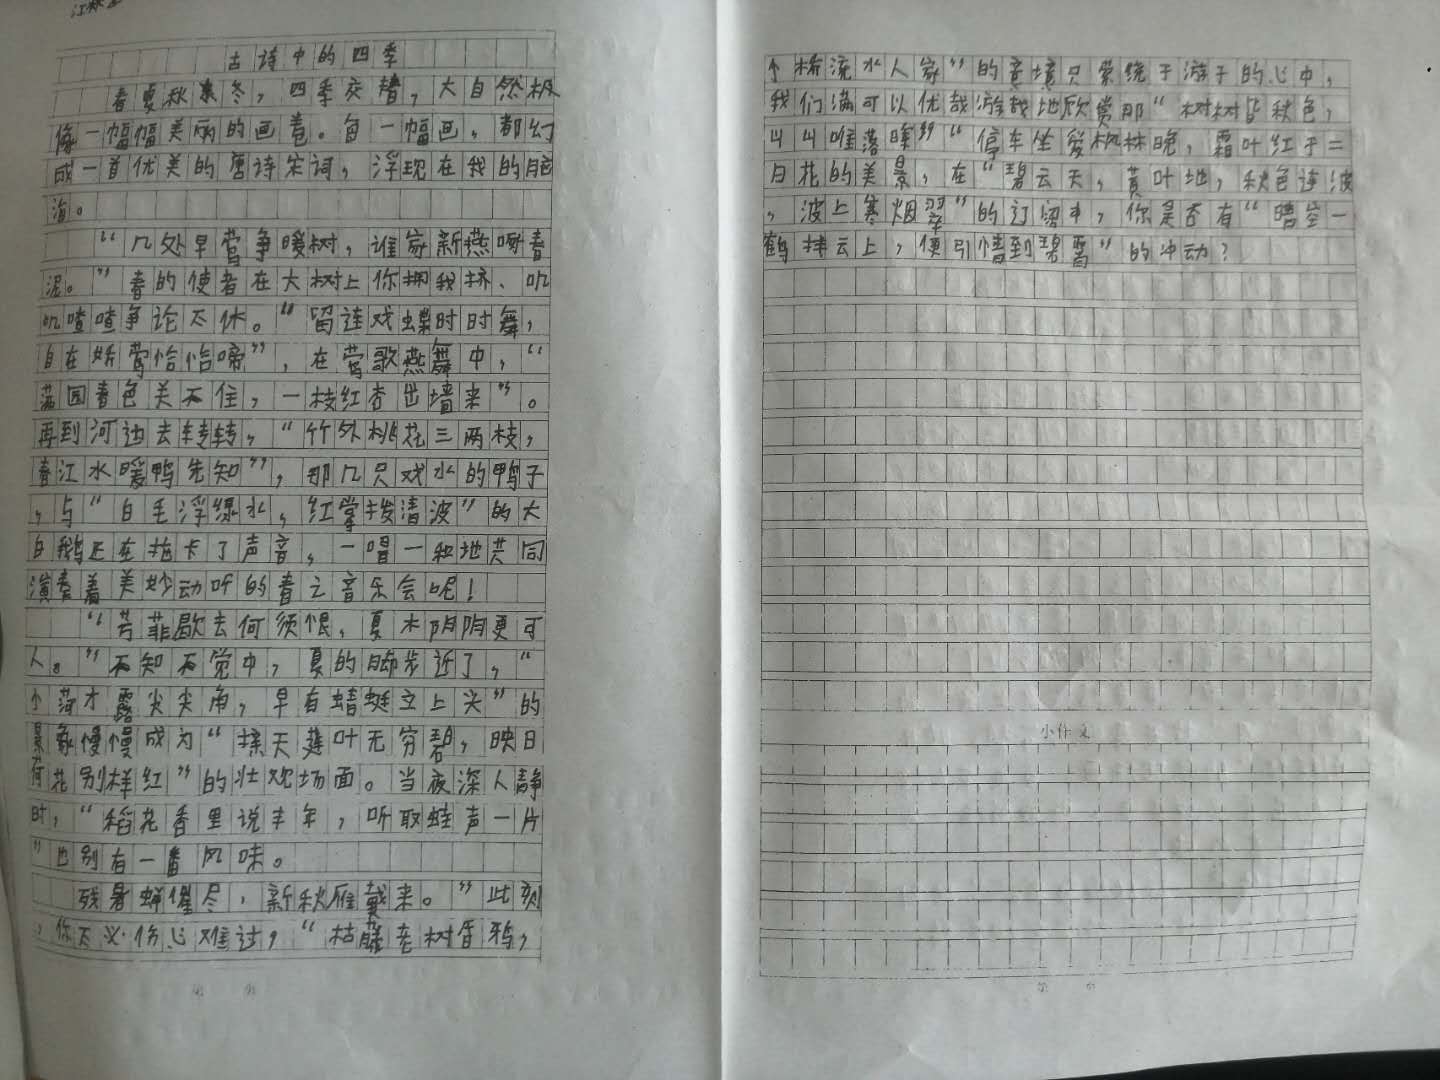 古诗中的四季
春夏秋冬，四季交替，大自然极
像一幅幅美丽的画卷。每一幅画，都幻
成一首优美的唐诗宋词，浮现在我的脑
海。
“几处早莺争暖树，谁家新燕啄春
泥。”春的使者在大树上你拥我挤、叽
叽喳喳争论不休。“留连戏蝶时时舞，
自在娇莺恰恰啼”，在莺歌燕舞中，“
满园春色关不住，一枝红杏出墙来”。
再到河边去转转，“竹外桃花三两枝，
春江水暖鸭先知”，那几只戏水的鸭子
，与“白毛浮绿水，红掌拨清波”的大
白鹅正在拖卡了声音，一唱一和地共同
演奏着美妙动听的春之音乐会呢！
“芳菲歇去何须恨，夏木阴阴更可
人。”不知不觉中，夏的脚步近了，“
小荷才露尖尖角，早有蜻蜓立上头”的
景象慢慢成为“接天莲叶无穷碧，映日
荷花别样红”的壮观场面。当夜深人静
时，“稻花香里说丰年，听取蛙声一片
”也别有一番风味。
残暑蝉催尽，新秋雁戴来。”此刻
，你不必伤心难过，“枯藤老树昏鸦，
小桥流水人家”的意境只萦绕于游子的心中，
我们满可以优哉游哉地欣赏那“树树皆秋色，
山山唯落晖”“停车坐爱枫林晚，霜叶红于二
月花的美景，在“碧云天，黄叶地，秋色连波
，波上寒烟翠”的中，你是否有“晴空一
鹤排云上，便引情到碧霄”的冲动？
小作文
第 页
第 页